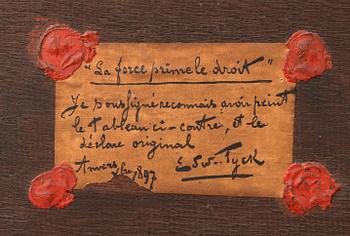 "La force prime le droit"
Je soussigné reconnais avoir peint
le tableau ci-contre, et le
déclare original
Anvers
1897